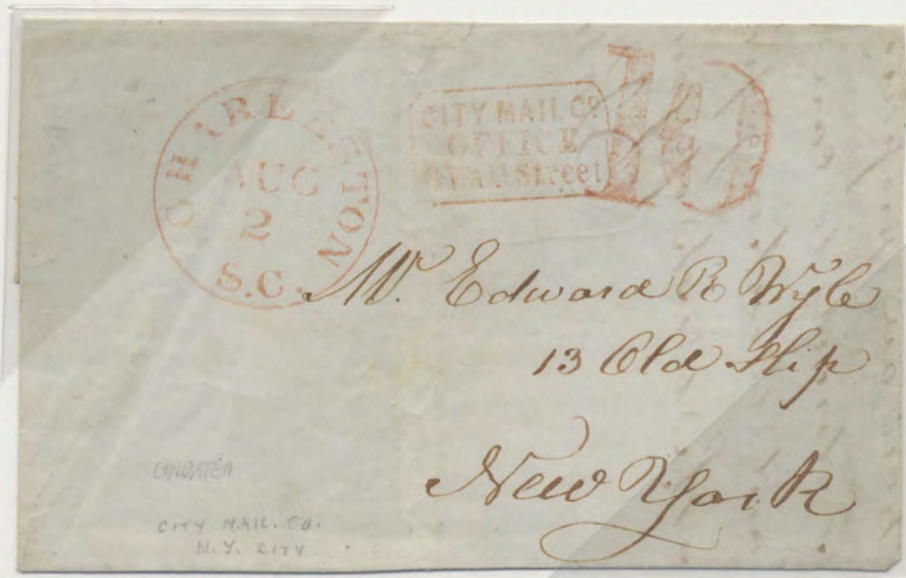 CHARLESTON
AUG
2
S.C.
CITY MAIL Co.
OFFICE
Street
10
Mr. Edward R Wyle
13 Old Slip
New York
UNDATED
CITY MAIL. CO.
N.Y. CITY